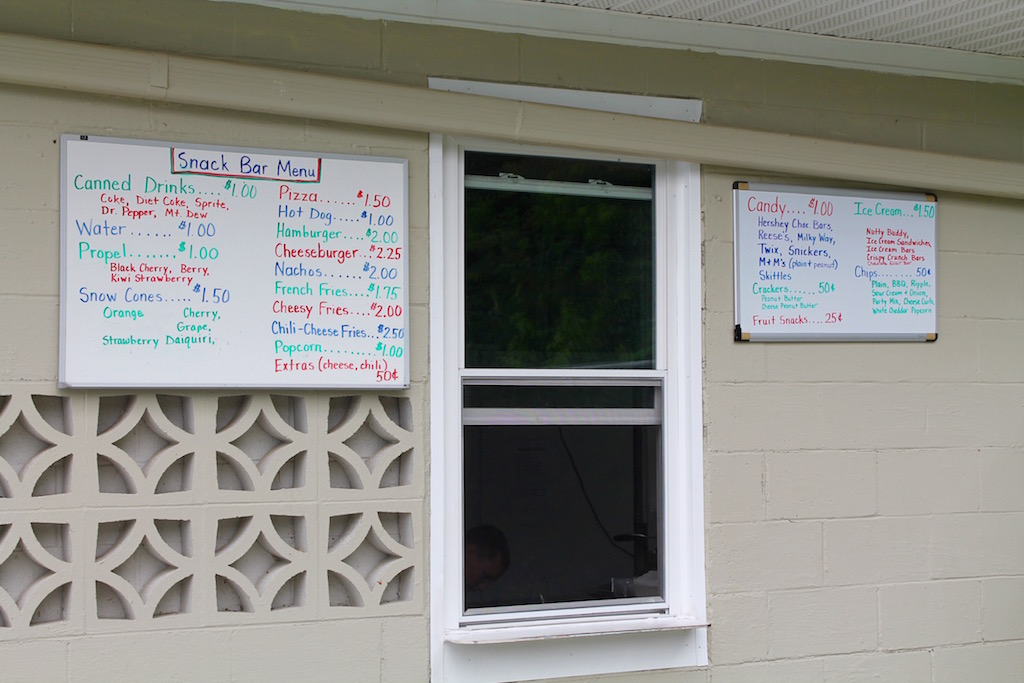 Snack Bar Menu
Canned Drinks.... $1.00
Coke, Diet Coke, Sprite,
Dr. Pepper, Mt. Dew
Water ...... $1.00
Propel....... $1.00
Black Cherry, Berry,
Kiwi Strawberry
Snow Cones..... $1.50
Orange Cherry,
Grape,
Strawberry Daiquiri,
Pizza......... $1.50
Hot Dog..... $1.00
Hamburger... $2.00
Cheeseburger... $2.25
Nachos....... $2.00
French Fries.... $1.75
Cheesy Fries.... $2.00
Chili-Cheese Fries... $2.50
Popcorn......... $1.00
Extras (cheese, chili)
50¢
Candy.... $1.00
Hershey Choc. Bars,
Reese's, Milky Way,
Twix, Snickers,
M+M's (plain + peanut)
Skittles
Crackers...... 50¢
Peanut Butter
Cheese Peanut Butter
Fruit Snacks.... 25¢
Ice Cream... $1.50
Nutty Buddy,
Ice Cream Sandwiches,
Ice Cream Bars
Crispy Crunch Bars
Chips..... 50¢
Plain, BBQ, Ripple,
Sour Cream + Onion,
Party Mix, Cheese Curls,
White Cheddar Popcorn